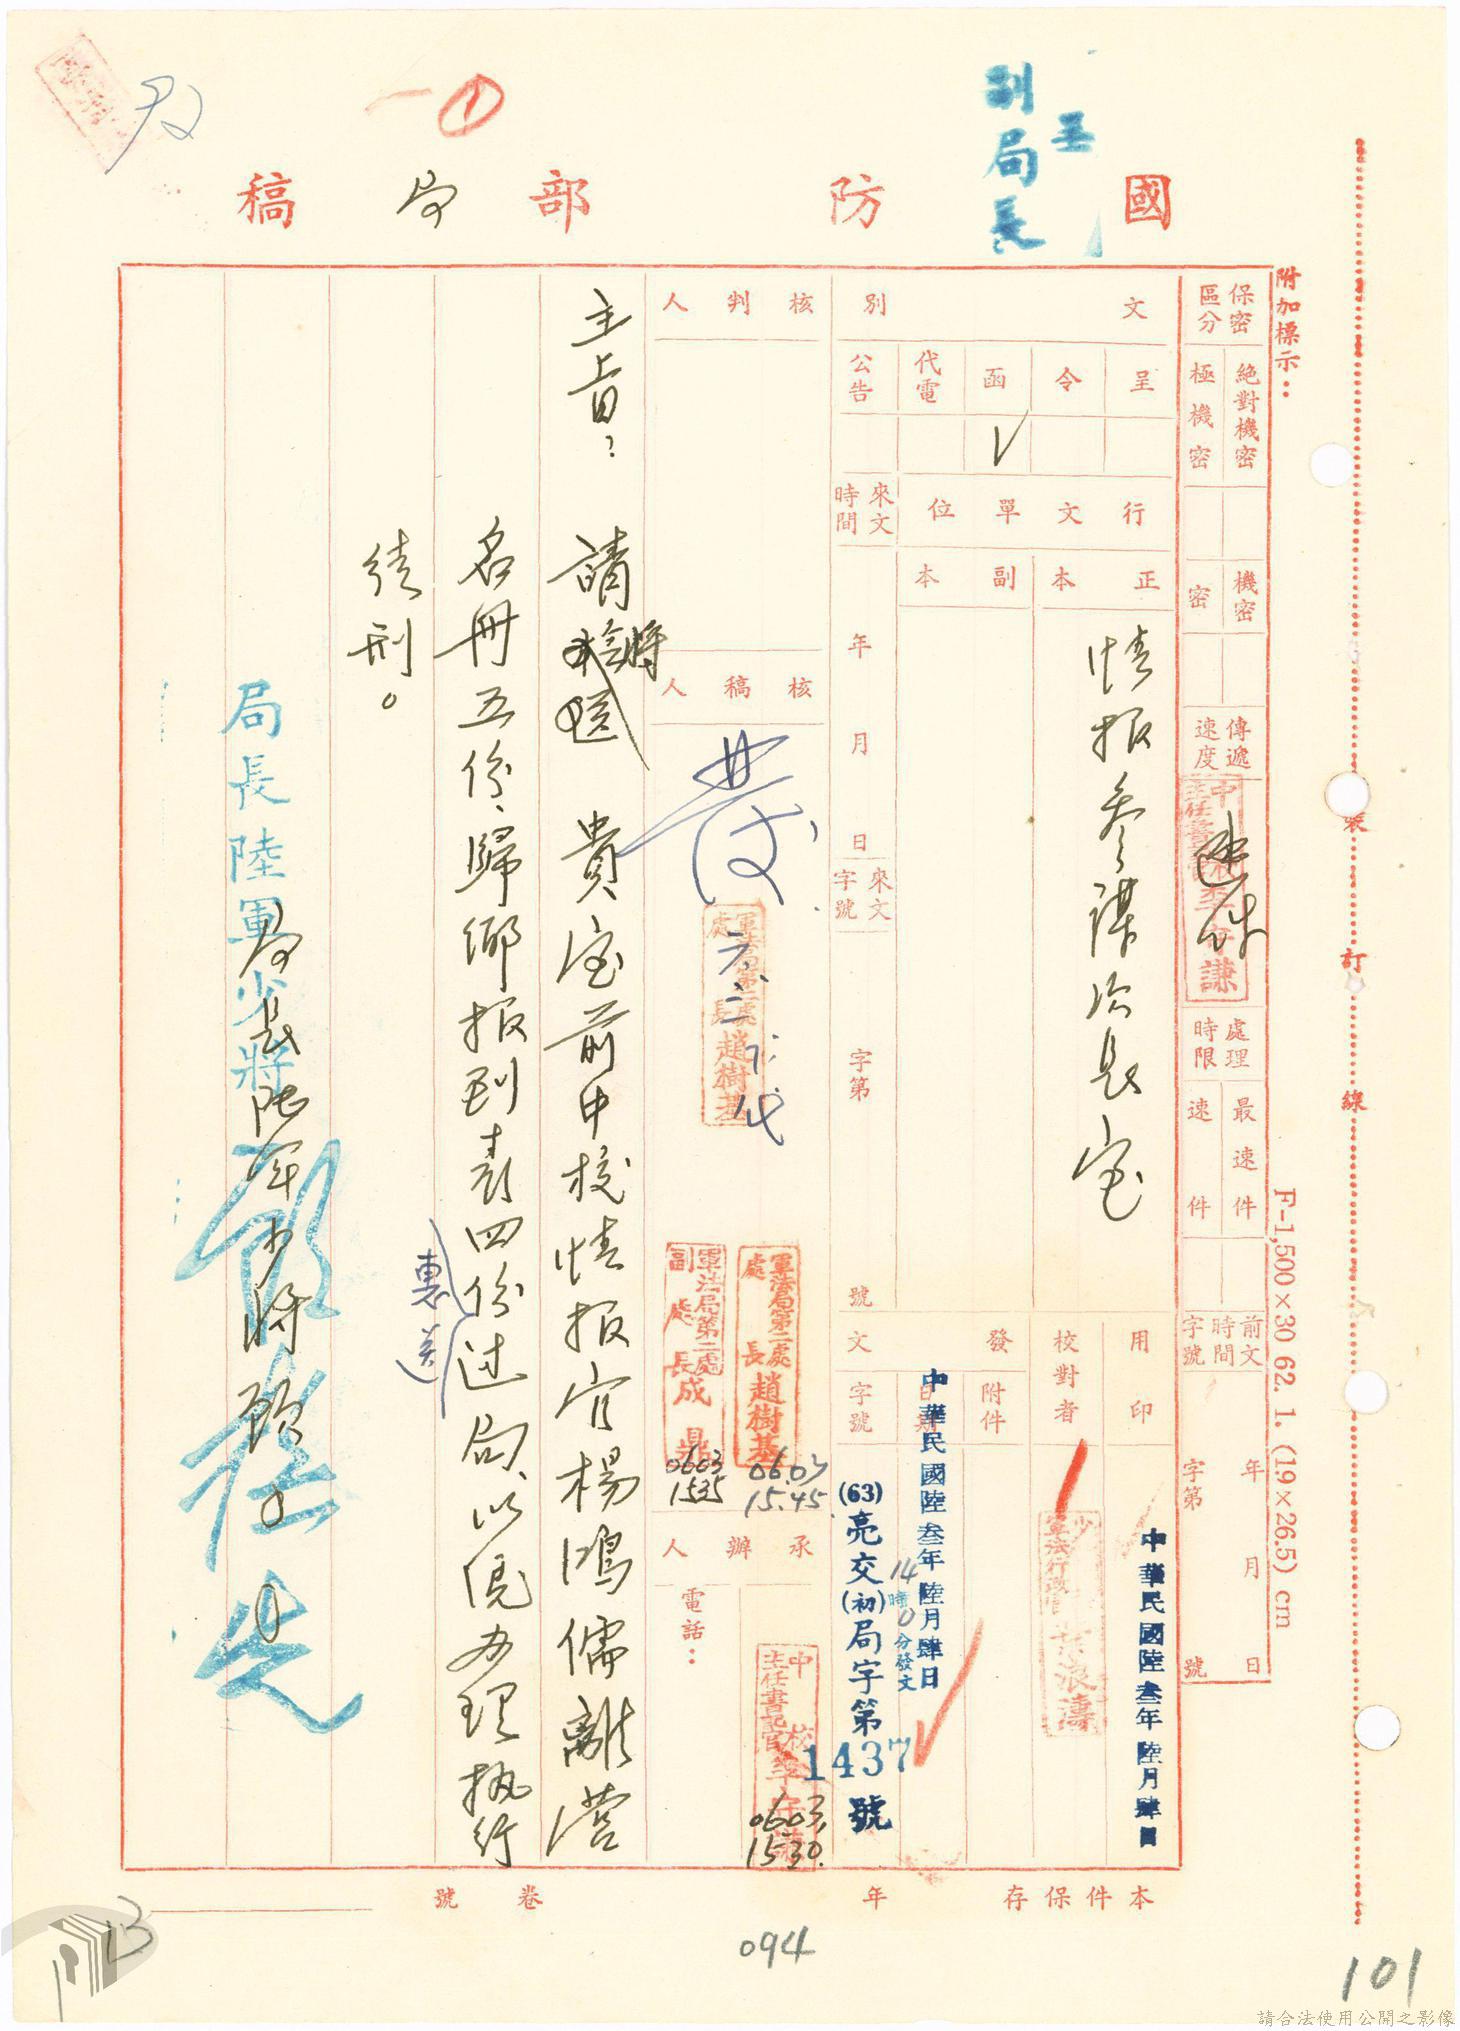 呈
副局長
國防部局稿
附加標示：
保密區分
絕對機密
極機密
機密
密
傳遞速度
速件
處理時限
最速件
速件
前文時間字號
年月日
字第號
文別
呈
令
函
代電
公告
√
行文單位
正本
副本
情報參謀次長室
來文時間
年月日
來文字號
字第號
用印
中華民國陸叁年陸月肆日
校對者
發文
附件
日期
中華民國陸叁年陸月肆日
14時0分發文
字號
(63)亮交(初)局字第1437號
核判人
核稿人
軍法局第二處處長趙樹基
軍法局第二處處長趙樹基
06.03
15.45
軍法局第二處副處長成鼎
0603
1535
承辦人
電話：
中校主任書記官
0603
1530.
主旨：請將貴室前中校情報官楊鴻儒離營
名冊五份、歸鄉報到表四份惠送過局、以便办理執行
徒刑。
局長陸軍少將
局長陸軍少將
本件保存年
卷號
裝訂線
F-1,500×30 62. 1. (19.×26.5) cm
094
101
13
請合法使用公開之影像